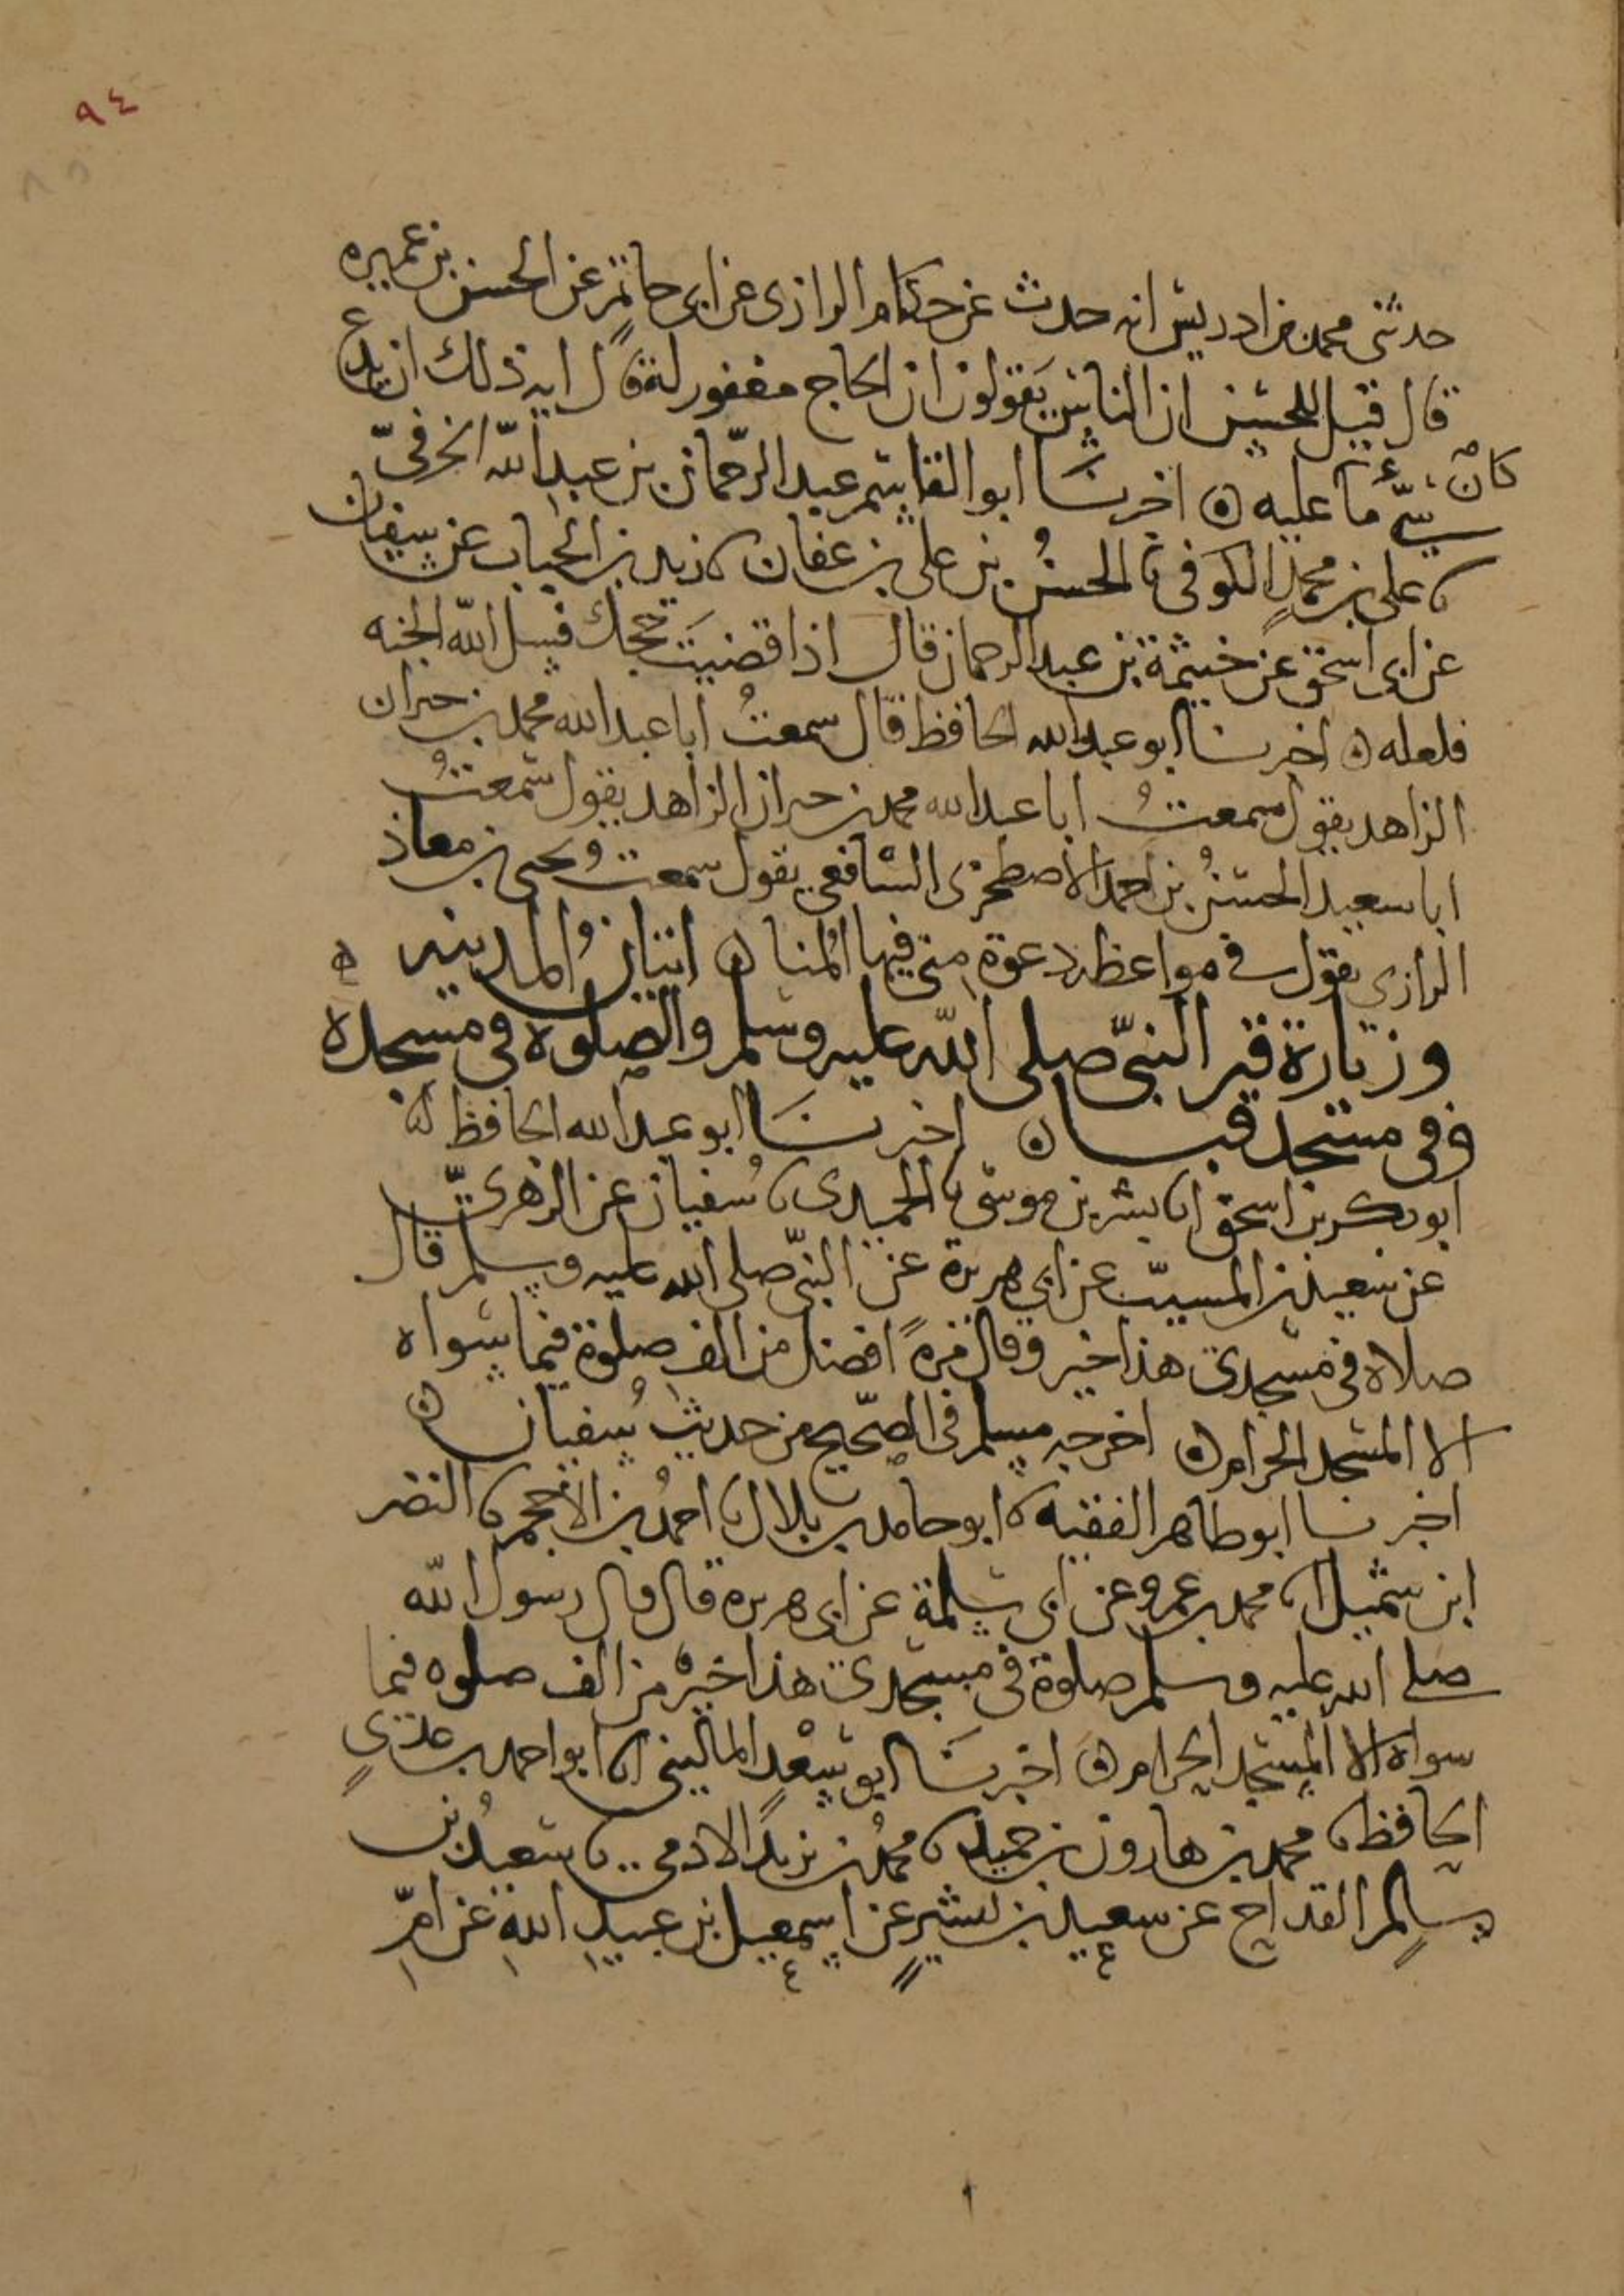 ٩٤
٨٥
حدثنى محمد بن ادريس انه حدث عن حكام الرازى عن ابى حاتم عن الحسن بن عميره
قال قيل للحسن ان الناس يقولون ان الحاج مغفور له قال ايه ذلك ان يدع
سيّئ ما كان عليه ٥ اخبرنا ابو القاسم عبد الرحمان بن عبد الله الخرفىّ
نا على بن محمد الكوفى نا الحسنُ بن على بن عفان نا زيد بن الحباب عن سفيان
عن ابى اسحق عن خيثمة بن عبد الرحمان قال اذا قضيتَ حجك فسل الله الجنه
فلعله ٥ اخبرنا ابو عبد الله الحافظ قال سمعتُ ابا عبد الله محمد بن حمران
الزاهد يقول سمعتُ ابا عبد الله محمد بن حمران الزاهد يقول سمعتُ
ابا سعيد الحسنُ بن احمد الاصطخرى الشافعى يقول سمعتُ يحيى بن معاذ
الرازى يقول فى مواعظه دعوة منى فيها المنا ٥ اتيانُ المدينه
وزيارة قبر النبىّ صلى الله عليه وسلم والصلوة فى مسجده
وفى مسجد قبا ٥ اخبرنا ابو عبد الله الحافظ انا
ابو بكر بن اسحق انا بشر بن موسى نا الحميدى نا سُفيان عن الزهرىّ
عن سعيد بن المسيّب عن ابى هريرة عن النبىّ صلى الله عليه وسلم قال
صلاة فى مسجدى هذا خير وقال مرةً افضل من الف صلوة فيما سواه
الا المسجد الحرام ٥ اخرجه مسلم فى الصّحيح من حديث سُفيان ٥
اخبرنا ابو طاهر الفقيه نا ابو حامد بن بلال نا احمدُ بن الاحجم نا النضر
ابن شميل انا محمد بن عمرو عن ابى سلمة عن ابى هريره قال قال رسول الله
صلى الله عليه وسلم صلوة فى مسجدى هذا خيرٌ من الف صلوه فيما
سواه الا المسجد الحرام ٥ اخبرنا ابو سعْد المالينى انا ابو احمد بن عدىٍ
الحافظ نا محمد بن هارون بن حميد نا محمدُ بن يزيد الادمى نا سعيدُ بن
سالم القداح عن سعيد بن بشيرٍ عن اسمعيل بن عبيد الله عن امّ